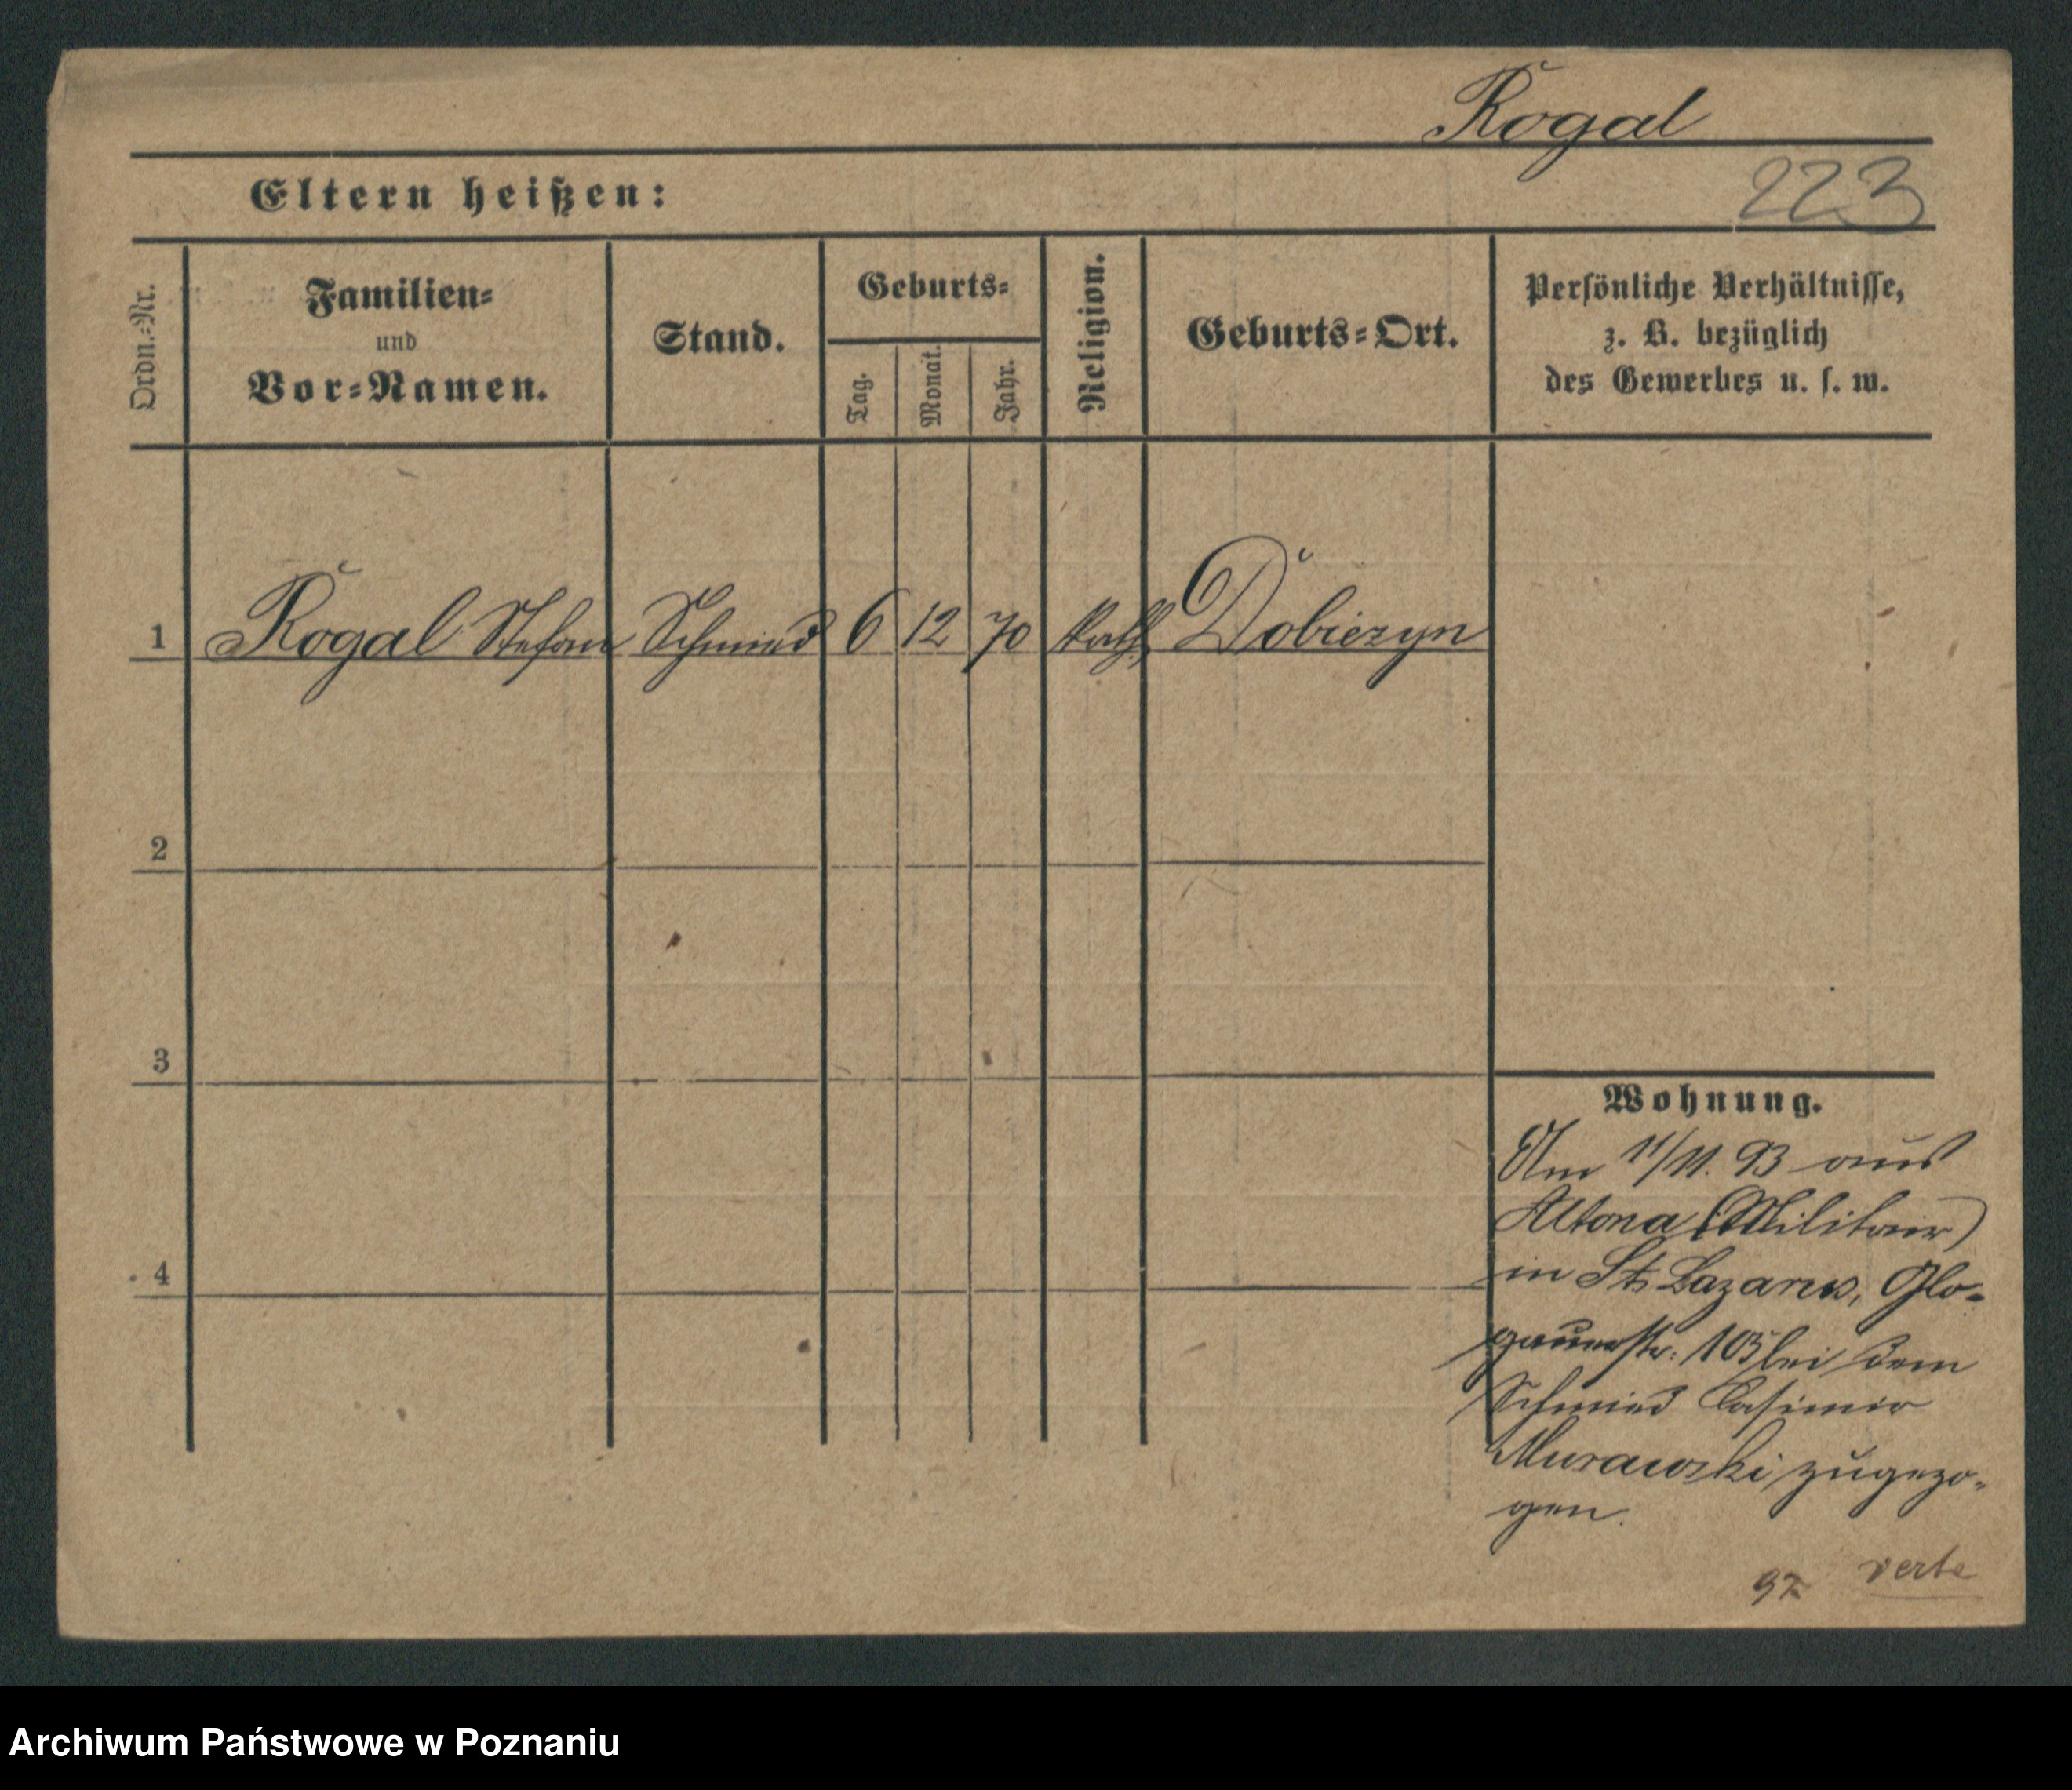 Rogal
Eltern heißen:
223
Ordn.-Nr.
Familien-
und
Vor-Namen.
Stand.
Geburts-
Tag.
Monat.
Jahr.
Religion.
Geburts-Ort.
Persönliche Verhältnisse,
z. B. bezüglich
des Gewerbes u. s. w.
1 Rogal Stefan Schmied 6 12 70 kath. Dobiezyn
2
3
4
Wohnung.
Am 11/11. 93 aus
Altona (Militair)
in St. Lazarus, Glo-
gauerstr. 105 bei dem
Schmied Casimir
Murawski zugezo-
gen.
verte
Archiwum Państwowe w Poznaniu